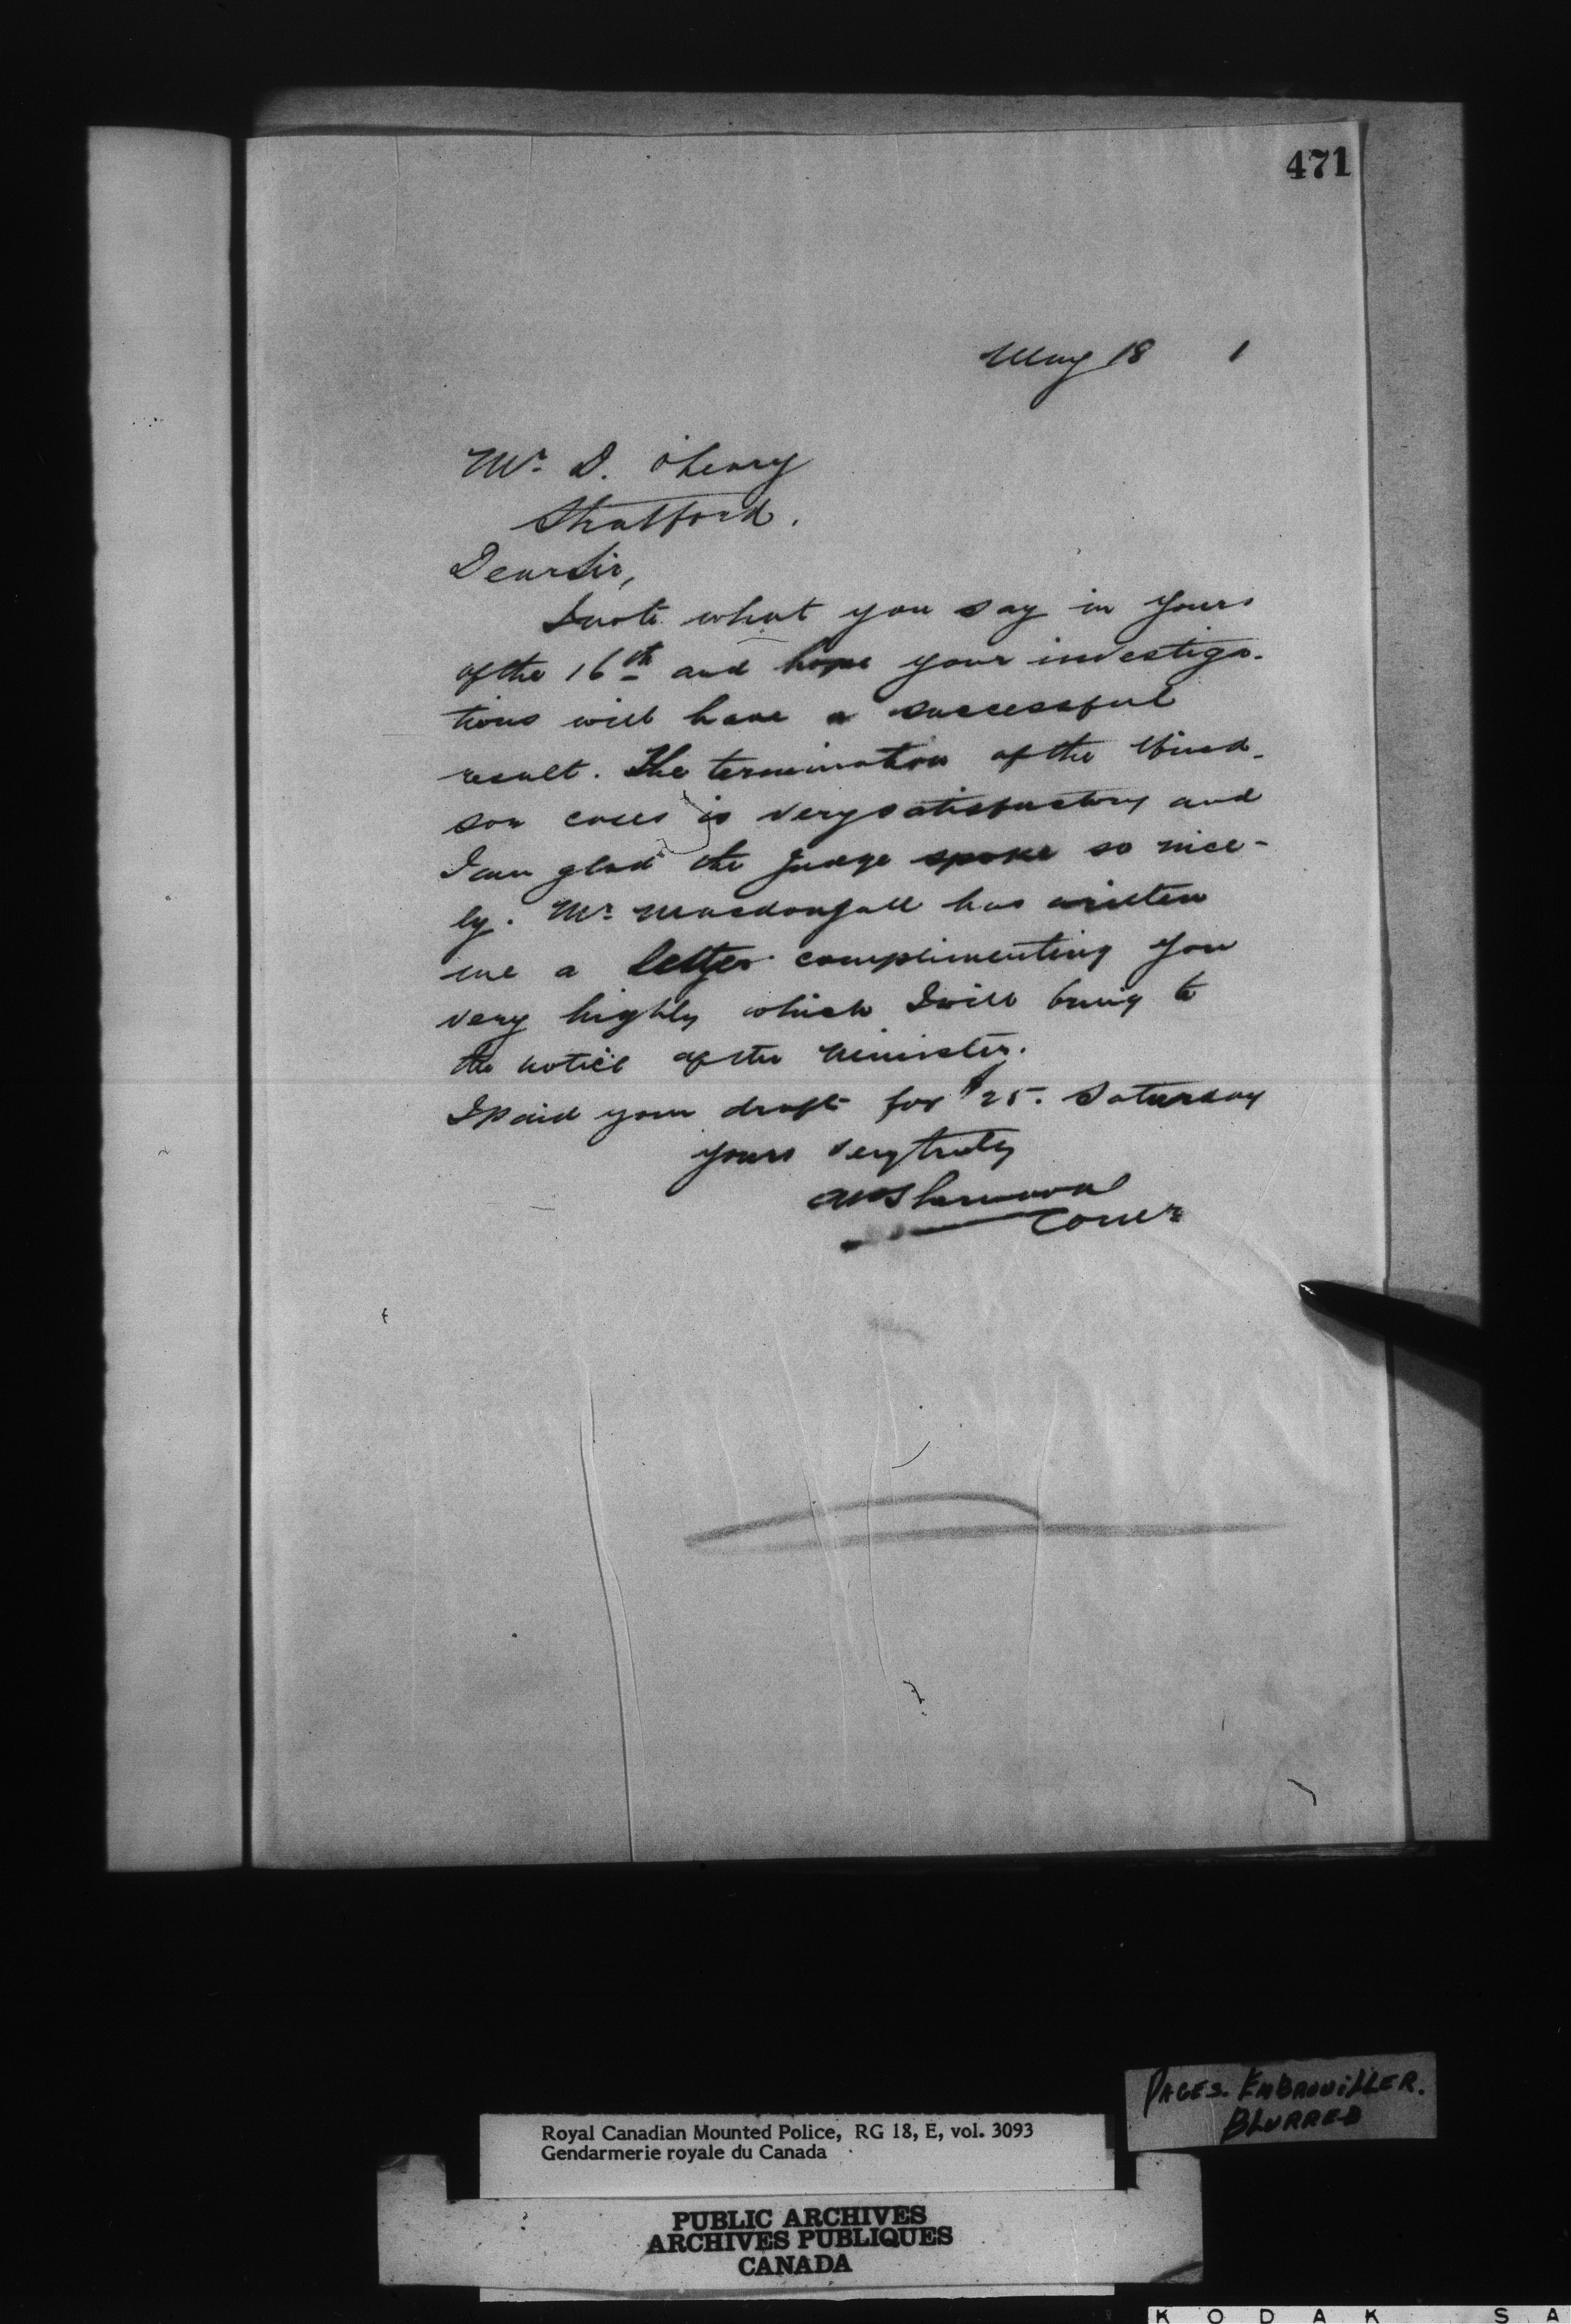 471
May 18 1
Mr. D. O'Leary
Stratford.
Dear Sir,
I note what you say in yours
of the 16th and hope your investiga-
tions will have a successful
result. The termination of the Wind-
sor cases is very satisfactory and
I am glad the Judge spoke so nice-
ly. Mr. Macdougall has written
me a letter complimenting you
very highly which I will bring to
the notice of the Minister.
I paid your draft for $25. Saturday
yours very truly
AP Sherwood
Comr
PAGES. EMBROUILLER.
BLURRED
Royal Canadian Mounted Police, RG 18, E, vol. 3093
Gendarmerie royale du Canada
PUBLIC ARCHIVES
ARCHIVES PUBLIQUES
CANADA
KODAK SA